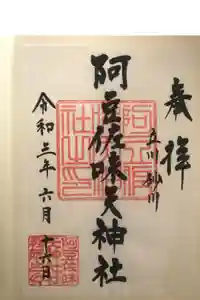 奉拝
立川 砂川
阿豆佐味天神社
令和三年六月十六日